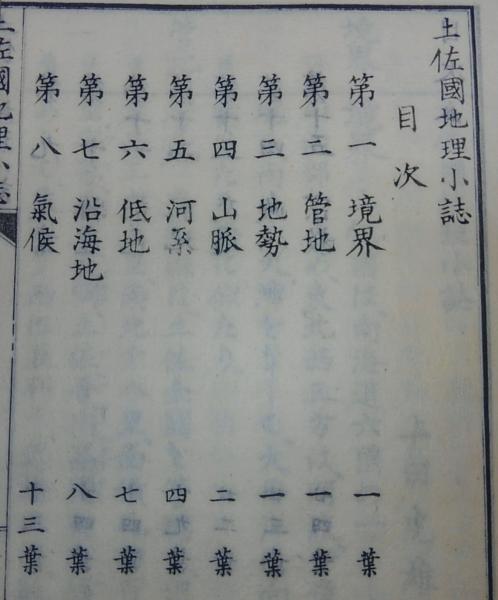 土佐國地理小誌
目次
第一 境界 一葉
第二 管地 一葉
第三 地勢 一葉
第四 山脈 二葉
第五 河系 四葉
第六 低地 七葉
第七 沿海地 八葉
第八 氣候 十三葉
土佐國地理小誌